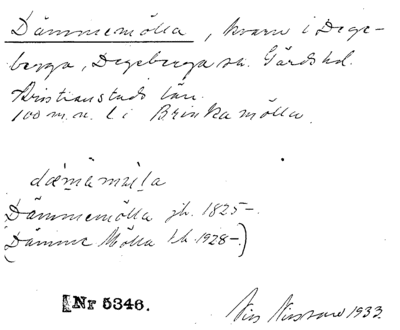 Dämmemölla, kvarn i Dege-
berga, Degeberga sn. Gärds hd.
Kristianstads län.
100 m. n. l. i Brinkamölla.
Dämmemölla jb. 1825-.
(Dämme Mölla tb 1928-.)
[Nr 5346.
Nils 1933.